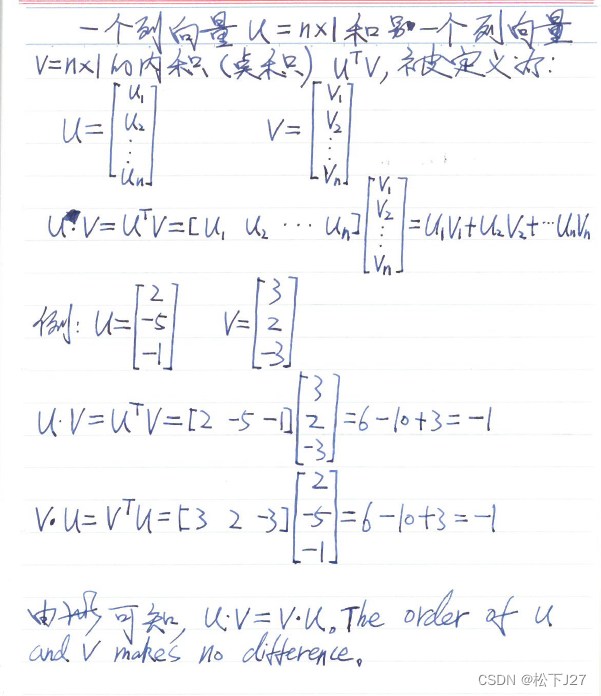 一个列向量 U=n×1和另一个列向量
V=n×1的内积(点积) UᵀV, 被定义为:
U=[U₁ U₂ ⋮ Uₙ] V=[V₁ V₂ ⋮ Vₙ]
U·V=UᵀV=[U₁ U₂ ⋯ Uₙ][V₁ V₂ ⋮ Vₙ]=U₁V₁+U₂V₂+⋯UₙVₙ
例: U=[2 -5 -1] V=[3 2 -3]
U·V=UᵀV=[2 -5 -1][3 2 -3]=6-10+3=-1
V·U=VᵀU=[3 2 -3][2 -5 -1]=6-10+3=-1
由 可知, U·V=V·U。The order of u
and v makes no difference。
CSDN @松下J27